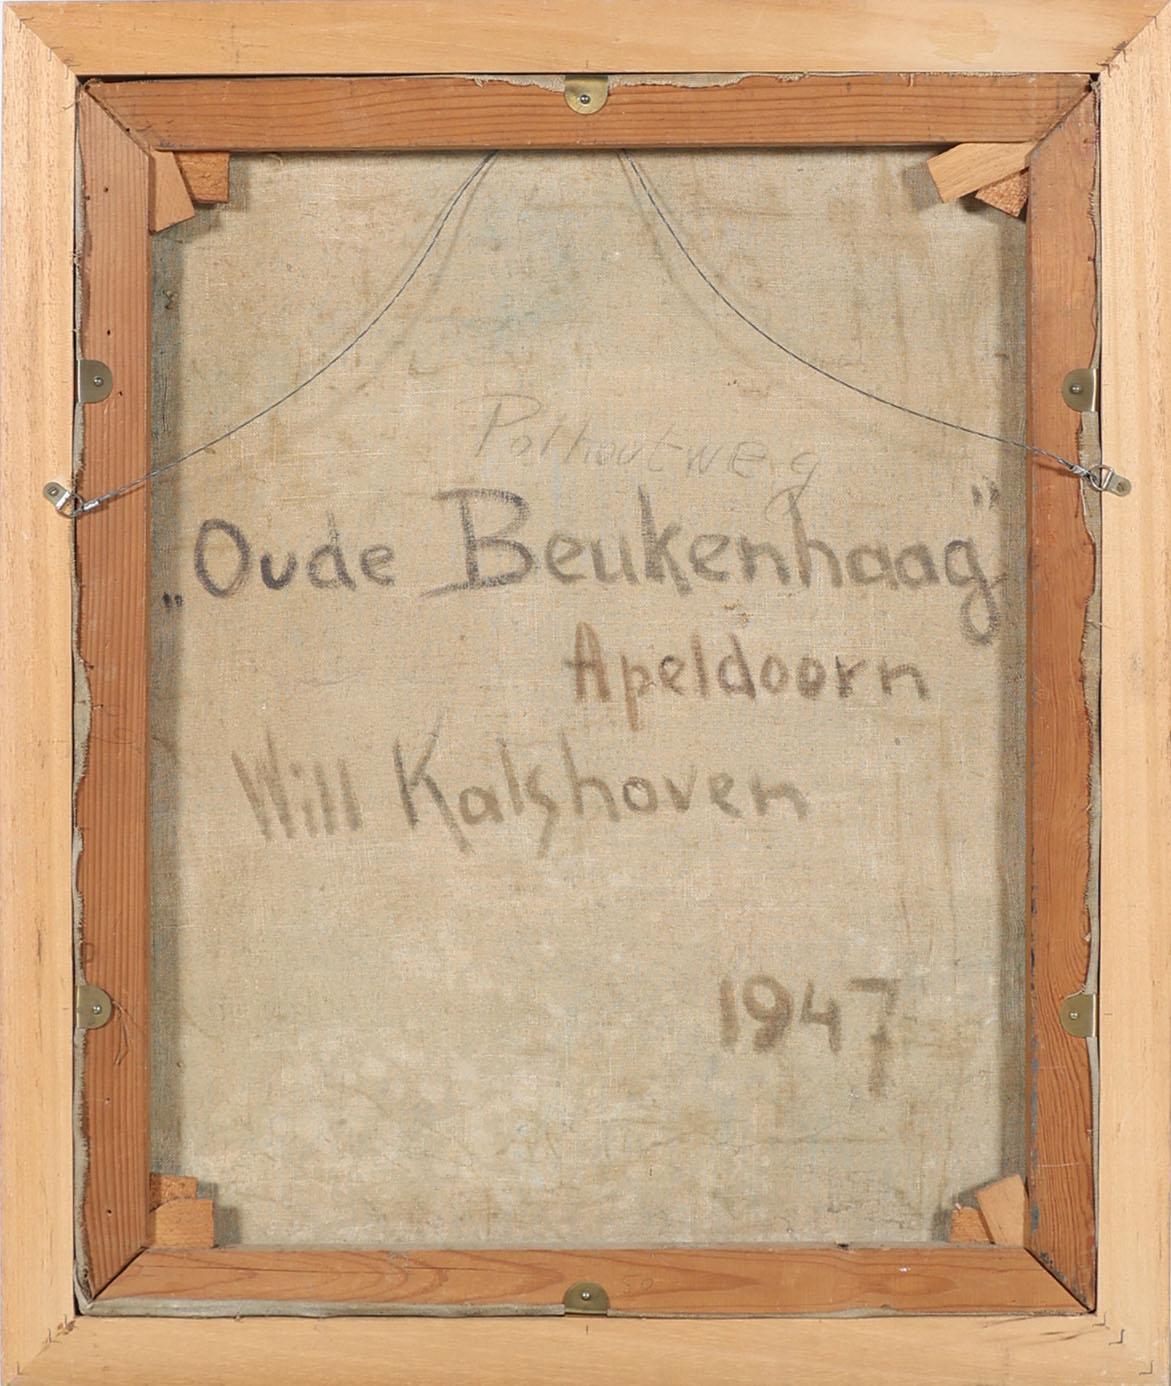 Polhoutweg
„Oude Beukenhaag"
Apeldoorn
Will Kalshoven
1947
50